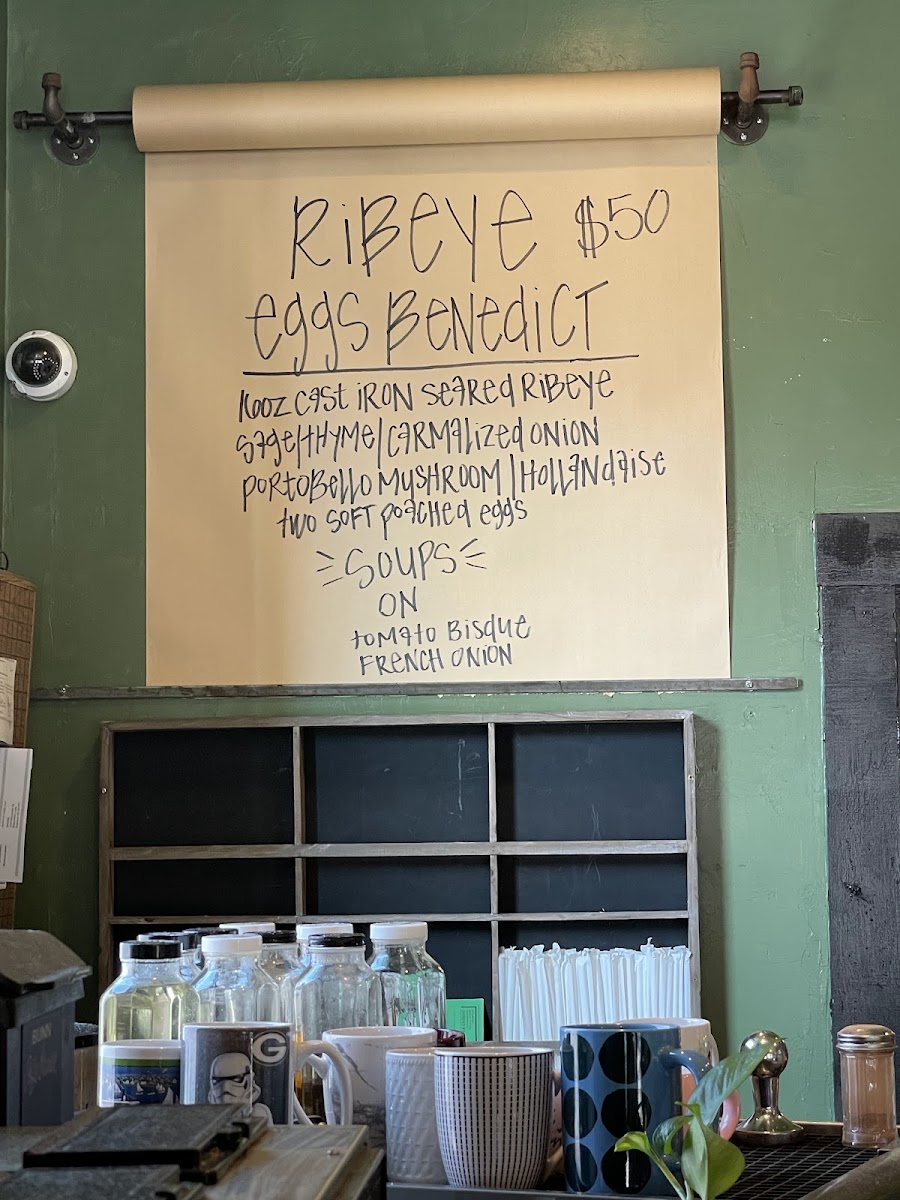 RiBeye $50
eggs BeNediCT
16oz cast iRON seared RiBeye
sage/tHyMe/caRMalized ONiON
poRtoBello MusHROOM / HollaNdaise
two soFT poacHed eggs
SOUPS
ON
toMato Bisque
FReNCH ONiON
G
BUNN